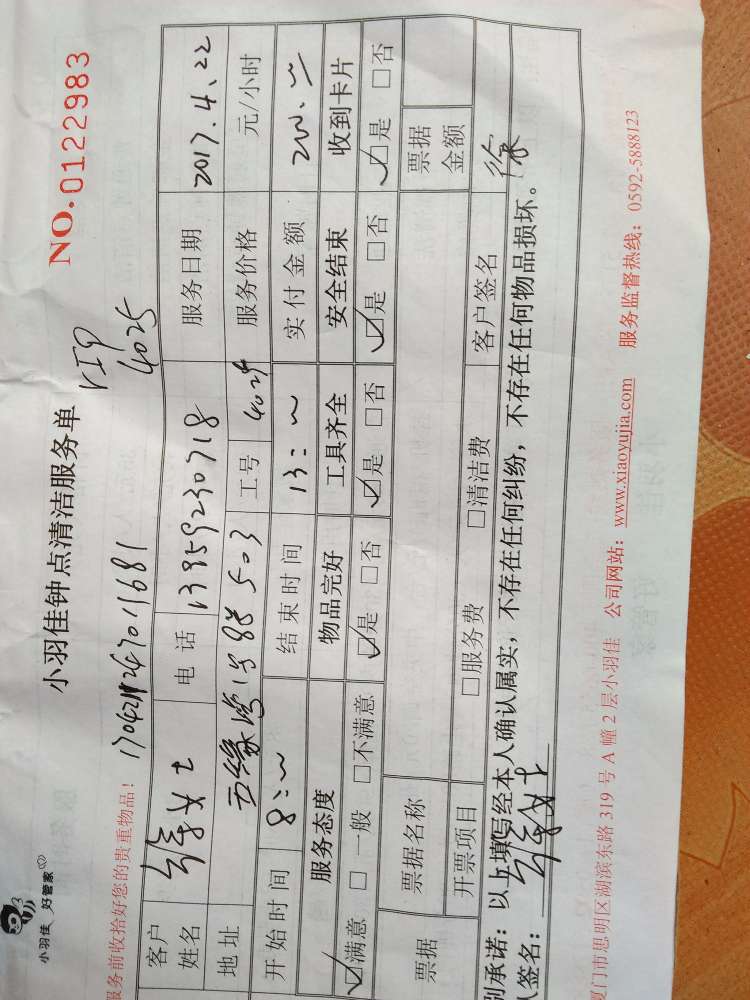 小羽佳 好管家
小羽佳钟点清洁服务单
NO.0122983
服务前收拾好您的贵重物品!
VIP 4025
客户姓名 女士 电话 13959230718 服务日期 2017.4.22
地址 五缘湾 88 503 工号 4025 服务价格 元/小时
开始时间 8: 结束时间 13: 实付金额 200.
服务态度 物品完好 工具齐全 安全结束 收到卡片
☑满意 □一般 □不满意 ☑是 □否 ☑是 □否 ☑是 □否 ☑是 □否
票据 票据名称 票据金额
开票项目 □服务费 □清洁费 客户签名 徐
别承诺:以上填写经本人确认属实,不存在任何纠纷,不存在任何物品损坏。
人签名: 女士
厦门市思明区湖滨东路 319 号 A 幢 2 层小羽佳 公司网站:www.xiaoyujia.com 服务监督热线:0592-5888123